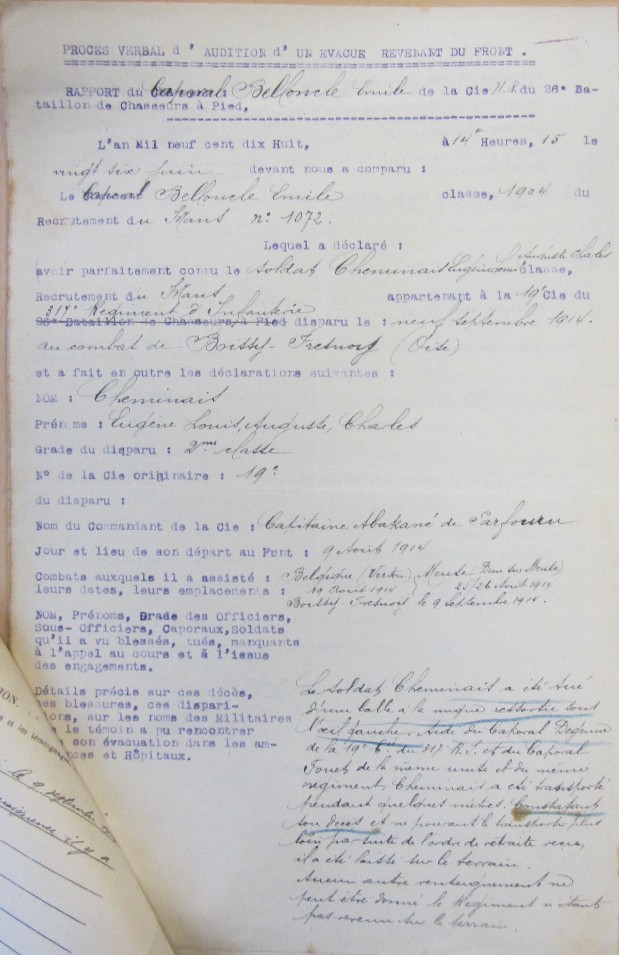 PROCES VERBAL d' AUDITION d' UN EVACUE REVENANT DU FRONT .
RAPPORT du Caporal Belloncle Emile de la Cie H.R. du 26e Ba-
taillon de Chasseurs à Pied,
L'an Mil neuf cent dix Huit, à 14 Heures, 15 le
vingt six juin devant nous a comparu :
Le Caporal Belloncle Emile classe, 1904 du
Recrutement du Mans n° 1072.
Lequel a déclaré :
Auguste Charles
avoir parfaitement connu le soldat Cheminais Eugène Louis classe,
Recrutement du Mans appartenant à la 19e Cie du
317e Régiment d'Infanterie
26e Bataillon de Chasseurs à Pied disparu le : neuf septembre 1914.
au combat de Boissy-Fresnoy (Oise)
et a fait en outre les déclarations suivantes :
NOM : Cheminais
Prénoms : Eugène Louis, Auguste, Charles
Grade du disparu : 2me classe
N° de la Cie orihinaire : 19e
du disparu :
Nom du Commandant de la Cie : Capitaine de Parfouru
Jour et lieu de son départ au Font : 9 Aout 1914
Combats auxquels il a assisté : Belgique (Virton) Meuse Dun sur Meuse
leurs dates, leurs emplacements : 19 Aout 1914 25/26 Aout 1914
Boissy Fresnoy le 9 Septembre 1914.
NOM, Prénoms, Grade des Officiers,
Sous- Officiers, Caporaux,Soldats
qu'il a vu blessés, tués, manquants
à l'appel au cours et à l'issue
des engagements.
Détails précis sur ces décès,
es blessures, ces dispari-
ions, sur les noms des Militaires
e le témoin a pu rencontrer
son évacuation dans les am-
nces et Hôpitaux.
Le soldat Cheminais a été tué
d'une balle à la nuque ressortie sous
l'œil gauche. Aidé du Caporal
de la 19e Cie du 317 R.I. et du Caporal
Fouet de la même unité et du même
régiment, Cheminais a été transporté
pendant quelques mètres. Constatant
son décès et ne pouvant le transporter plus
loin par suite de l'ordre de retraite reçu,
il a été laissé sur le terrain.
Aucun autre renseignement ne
peut être donné le Régiment n'étant
pas revenu sur le terrain.
ION.
s et les témoignages
le 9 septembre
il y a